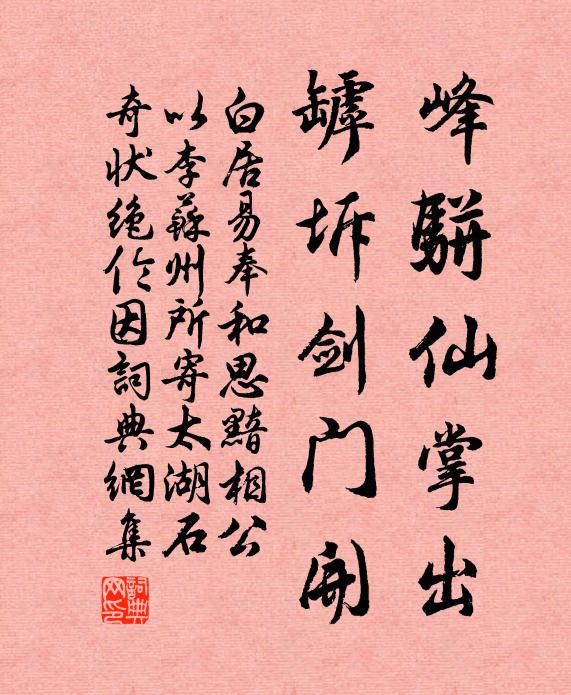 峰駢仙掌出
罅坼剑门開
白居易奉和思黯相公
以李蘇州所寄太湖石
奇状绝伦因詞典網集
詞典網印